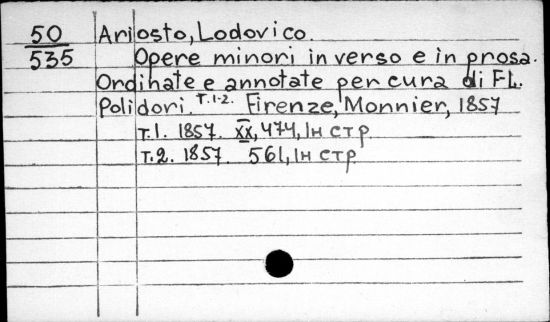 50 Ariosto, Lodovico.
535 Opere minori in verso e in prosa.
Ordinate e annotate per cura di FL.
Polidori. T.1-2. Firenze, Monnier, 1857
T.1. 1857. XX, 474, 1н стр
T.2. 1857. 561, 1н стр